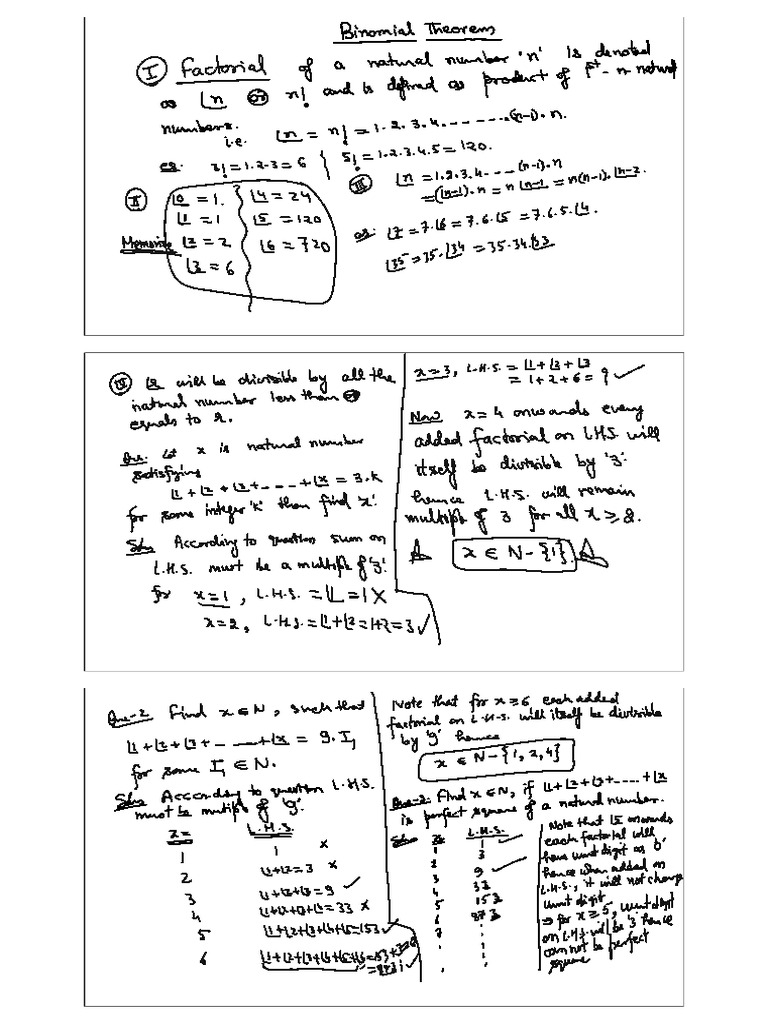 Binomial Theorem
I Factorial of a natural number 'n' is denoted
as ⌊n or n! and is defined as product of 1st - n natural
numbers.
i.e. ⌊n = n! = 1.2.3.4. - - - - - - .(n-1).n.
eg: 3! = 1.2.3 = 6 5! = 1.2.3.4.5 = 120.
II
Memorize
⌊0 = 1.
⌊1 = 1
⌊2 = 2
⌊3 = 6
⌊4 = 24
⌊5 = 120
⌊6 = 720
III ⌊n = 1.2.3.4. - - - (n-1).n
= ⌊(n-1).n = n ⌊n-1 = n(n-1).⌊n-2.
⌊7 = 7.⌊6 = 7.6.⌊5 = 7.6.5.⌊4.
⌊35 = 35.⌊34 = 35.34.⌊33
⌊r will be divisible by all the
natural number less than or
equals to r.
Que: Let x is natural number
satisfying
⌊1 + ⌊2 + ⌊3 + - - - + ⌊x = 3.k
for some integer 'k' then find 'x'.
Soln According to question sum on
L.H.S. must be a multiple of '3'.
for x=1, L.H.S. = ⌊1 = 1 X
x=2, L.H.S. = ⌊1+⌊2 = 1+2 = 3 ✓
x=3, L.H.S. = ⌊1+⌊2+⌊3
= 1+2+6 = 9 ✓
Now x=4 onwards every
added factorial on L.H.S. will
itself be divisible by '3'.
hence L.H.S. will remain
multiple of 3 for all x ≥ 2.
x ∈ N-{1}.
Que-2 Find x ∈ N, such that
⌊1+⌊2+⌊3+ - - - +⌊x = 9.I,
for some I, ∈ N.
Soln According to question L.H.S.
must be multiple of '9'.
x= L.H.S.
1 1 x
2 ⌊1+⌊2=3 x
3 ⌊1+⌊2+⌊3=9 ✓
4 ⌊1+⌊2+⌊3+⌊4=33 x
5 ⌊1+⌊2+⌊3+⌊4+⌊5=153 ✓
6 ⌊1+⌊2+⌊3+⌊4+⌊5+⌊6=153+720
=873 ✓
Note that for x≥6 each added
factorial on L.H.S. will itself be divisible
by '9' hence
x ∈ N-{1,2,4}
Que-2: Find x∈N, if ⌊1+⌊2+⌊3+.....+⌊x
is perfect square of a natural number.
Soln x L.H.S.
1 1 ✓
2 3
3 9 ✓
4 33
5 153
6 873
7
Note that ⌊5 onwards
each factorial will
have unit digit as '0',
hence when added on
L.H.S., it will not change
unit digit
⇒ for x≥5, unit digit
on L.H.S. will be '3' hence
can not be perfect
square